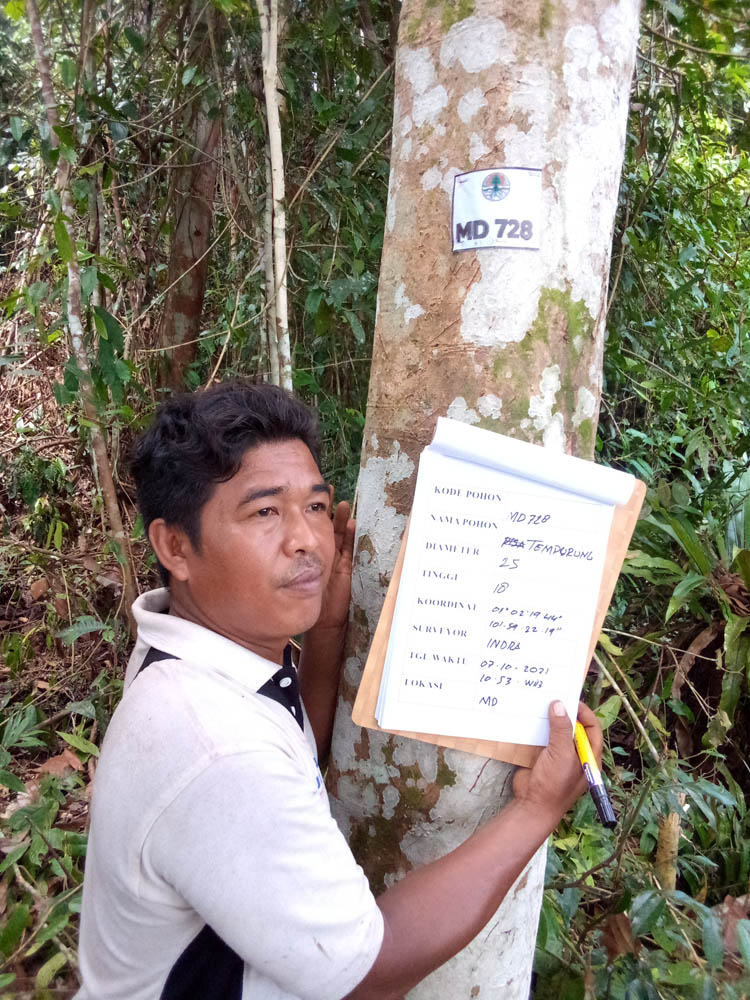 MD 728
KODE POHON
MD 728
NAMA POHON
TEMPURUNG
DIAMETER
25
TINGGI
18
KOORDINAT
01° 02' 19.44"
101.59.22.19"
SURVEYOR
INDRA
TGL WAKTU
07.10-2021
10.53. WIB
LOKASI
MD